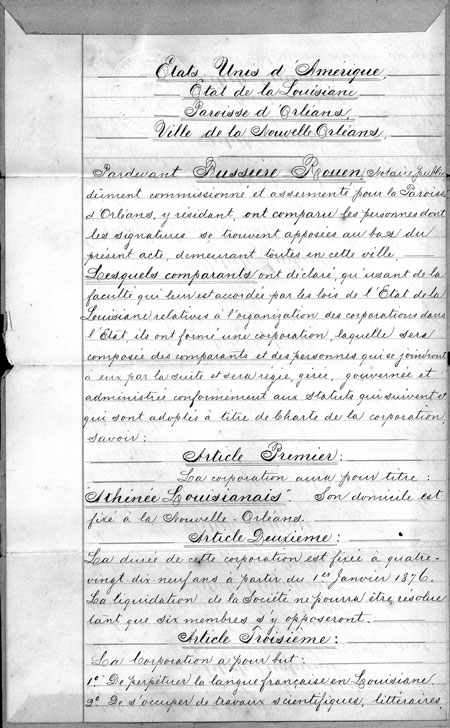 États Unis d'Amérique,
État de la Louisiane
Paroisse d'Orléans,
Ville de la Nouvelle Orléans,
Pardevant Bussiere Rouen, Notaire public
dûment commissionné et assermenté pour la Paroisse
d'Orléans, y résidant, ont comparu les personnes dont
les signatures se trouvent apposées au bas du
présent acte, demeurant toutes en cette ville,
Lesquels comparants ont déclaré, qu'usant de la
faculté qui leur est accordée par les lois de l'État de la
Louisiane relatives à l'organization des corporations dans
l'État, ils ont formé une corporation, laquelle sera
composée des comparants et des personnes qui se joindront
à eux par la suite et sera régie, gérée, gouvernée et
administrée conformément aux statuts qui suivent et
qui sont adoptés à titre de Charte de la corporation,
savoir:
Article Premier:
La corporation aura pour titre:
"Athénée Louisianais". Son domicile est
fixé à la Nouvelle-Orléans.
Article Deuxième:
La durée de cette corporation est fixée à quatre-
vingt dix neuf ans à partir du 1er Janvier 1876.
La liquidation de la Société ne pourra être résolue
tant que six membres s'y opposeront.
Article Troisième:
La Corporation a pour but:
1o De perpétuer la langue française en Louisiane.
2o De s'occuper de travaux scientifiques, littéraires,